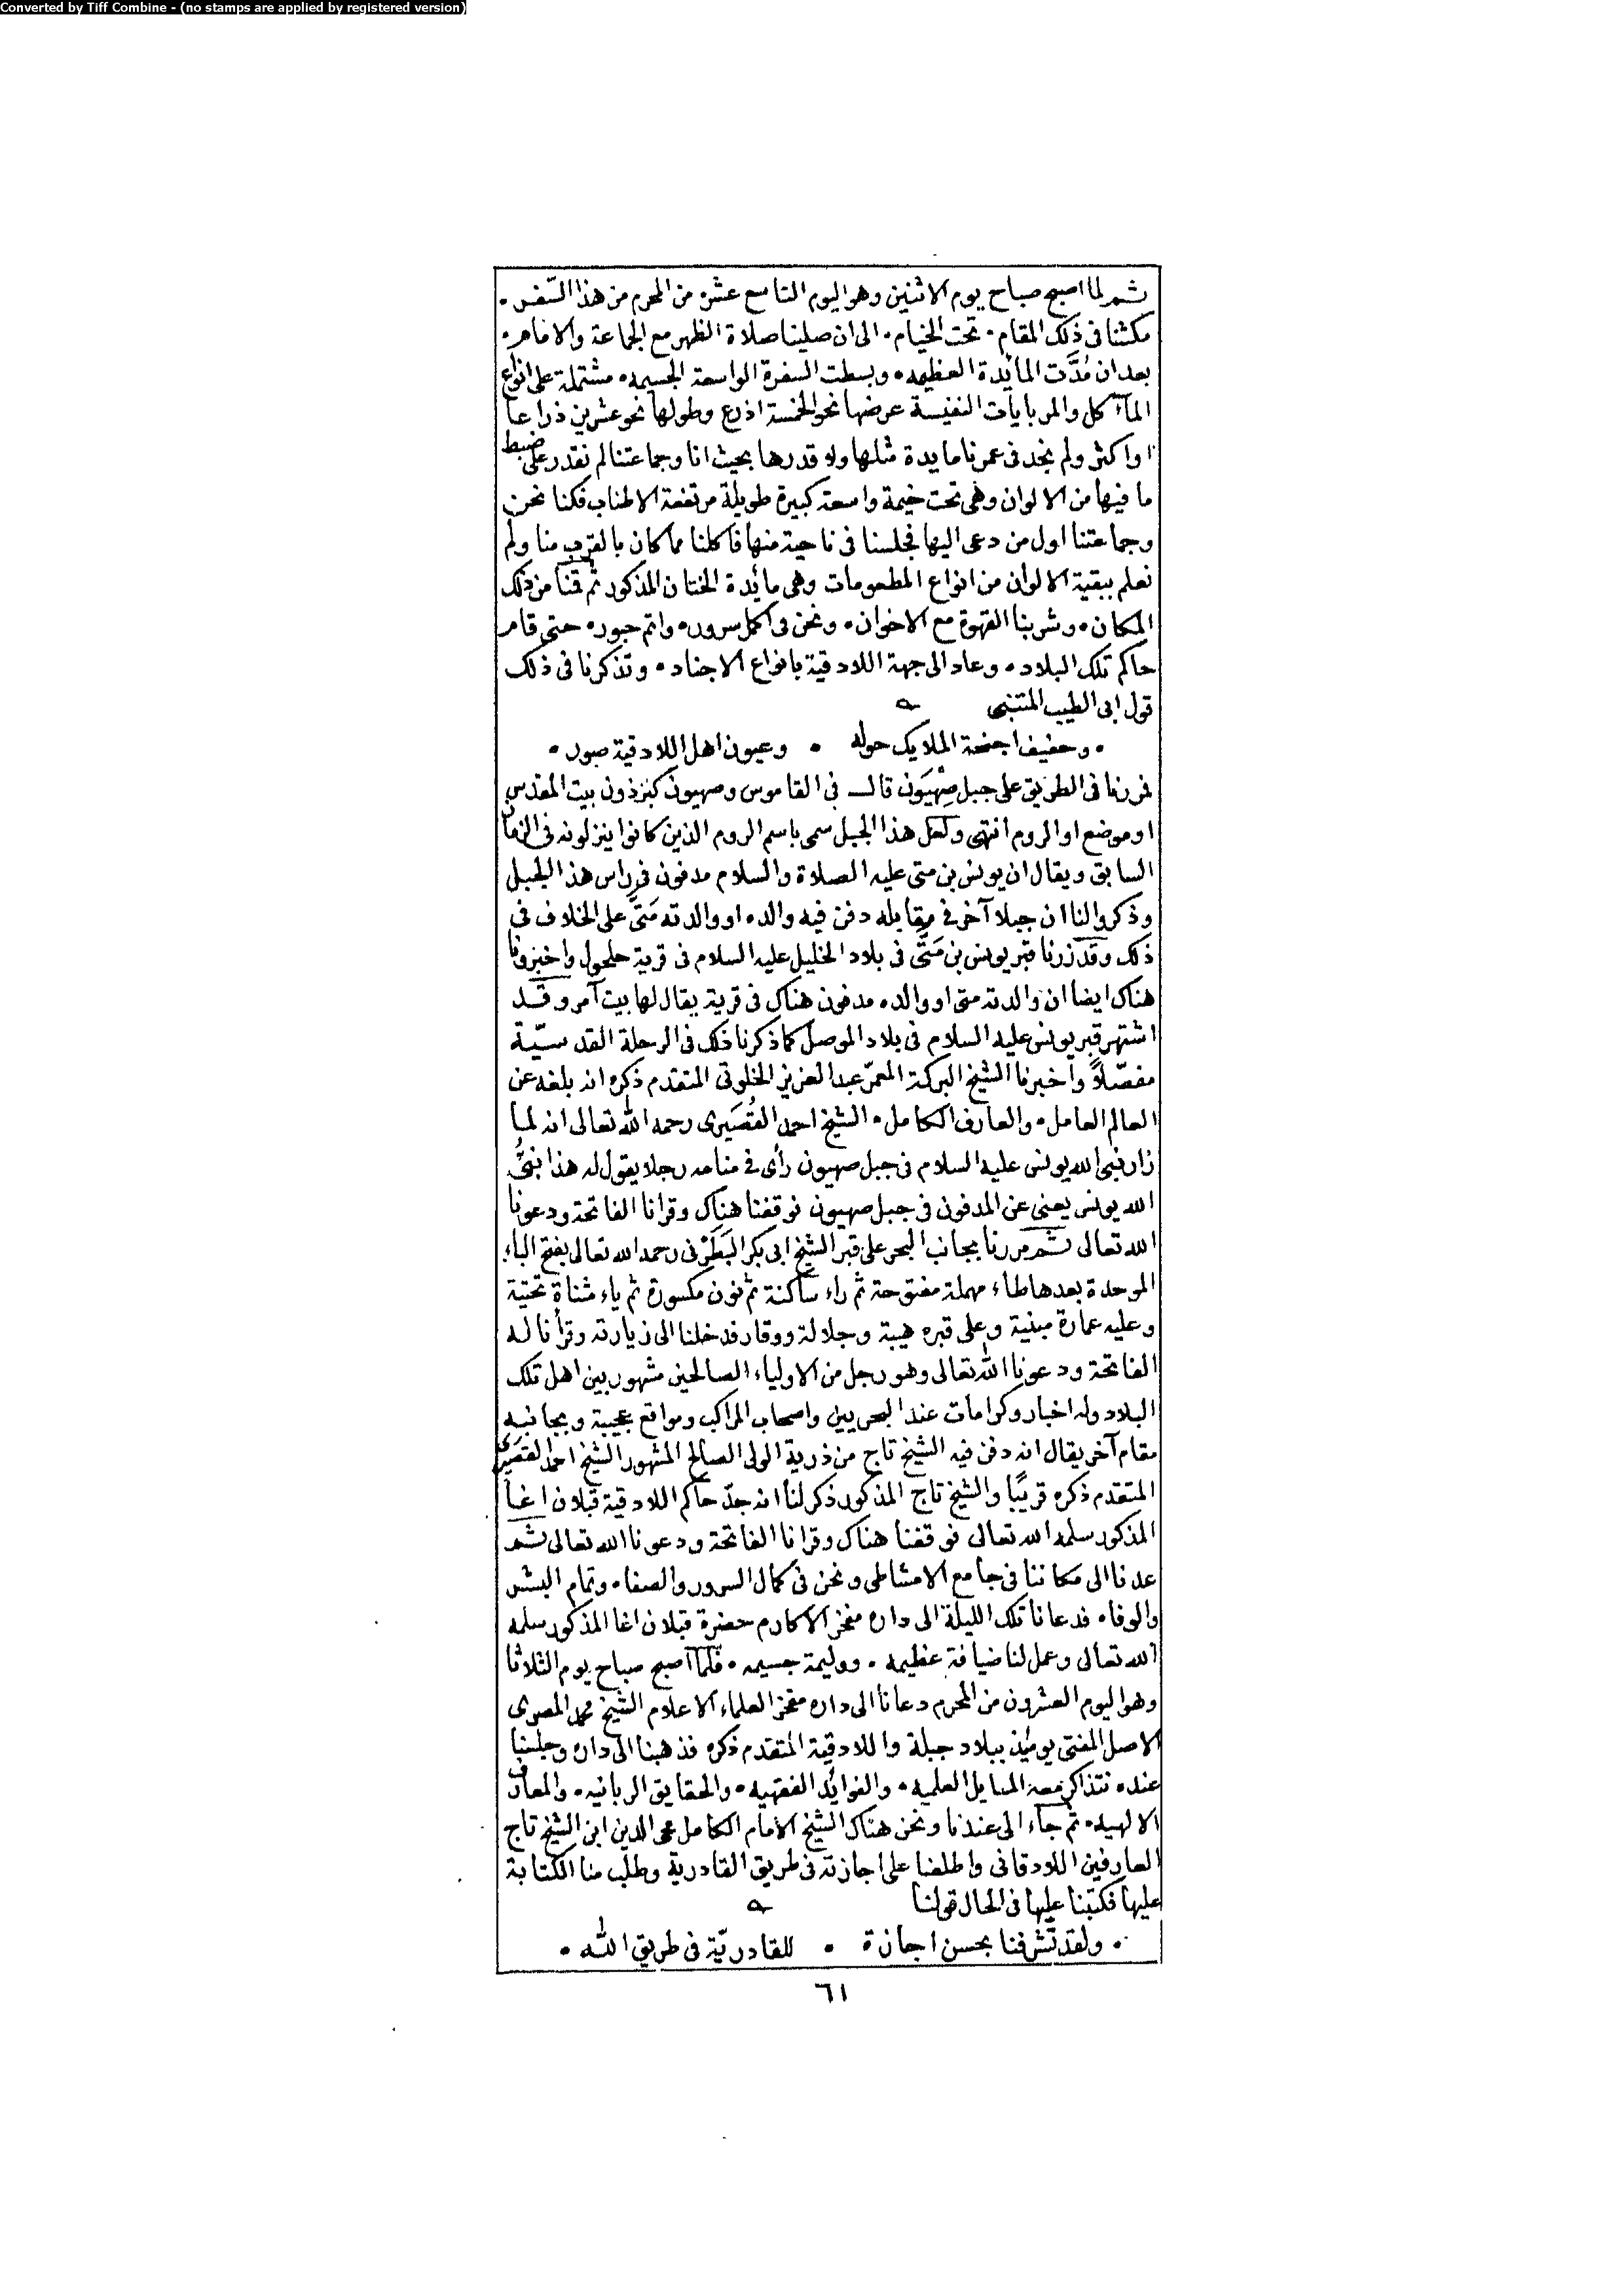 Converted by Tiff Combine - (no stamps are applied by registered version)
ثم لما اصبح صباح يوم الاثنين وهو اليوم التاسع عشر من المحرم من هذا السّفر •
مكثنا فى ذلك المقام • تحت الخيام • الى ان صلينا صلاة الظهر مع الجماعة والامام •
بعد ان مُدَّت المائدة العظيمه • وبسطت السفرة الواسعة الجسيمه • مشتملة على انواع
المآكل والمربايات النفيسة عرضها نحو الخمسة اذرع وطولها نحو عشرين ذراعا
او اكثر ولم نجد فى عمرنا مايدة مثلها ولا قدرها بحيث انا وجماعتنا لم نقدر على ضبط
ما فيها من الالوان وهى تحت خيمة واسعة كبيرة طويلة مرتفعة الاطناب فكنا نحن
وجماعتنا اول من دعى اليها فجلسنا فى ناحية منها فاكلنا مما كان بالقرب منا ولم
نعلم ببقية الالوان من انواع المطعومات وهى مائدة الختان المذكور ثم قمنا من ذلك
المكان • وشربنا القهوة مع الاخوان • ونحن فى اكمل سرور • واتم حبور • حتى قام
حاكم تلك البلاد • وعاد الى جهة اللادقية بانواع الاجناد • وتذكرنا فى ذلك
قول ابى الطيب المتنبى
• وحفيف اجنحة الملايك حوله • وعيون اهل اللادقية صور •
فمررنا فى الطريق على جبل صِهْيَون قال فى القاموس وصهيون كبرذون بيت المقدس
او موضع او الروم انتهى ولعل هذا الجبل سمى باسم الروم الذين كانوا ينزلونه فى الزمان
السابق ويقال ان يونس بن متى عليه الصلاة والسلام مدفون فى راس هذا الجبل
وذكروا لنا ان جبلا آخر فى مقابله دفن فيه والده او والدته مَتَّى على الخلاف فى
ذلك وقد زرنا قبر يونس بن مَتَّى فى بلاد الخليل عليه السلام فى قرية حلحول واخبرونا
هناك ايضا ان والدته متى او والده مدفون هناك فى قرية يقال لها بيت آمر وقد
اشتهر قبر يونس عليه السلام فى بلاد الموصل كما ذكرنا ذلك فى الرحلة القدسيّة
مفصّلاً واخبرنا الشيخ البركة المعمّر عبد العزيز الخلوتى المتقدم ذكره انه بلغه عن
العالم العامل • والعارف الكامل • الشيخ احمد القُصَيرى رحمه الله تعالى انه لما
زار نبى الله يونس عليه السلام فى جبل صهيون رأى فى منامه رجلا يقول له هذا نبىُّ
الله يونس يعنى عن المدفون فى جبل صهيون فوقفنا هناك وقرانا الفاتحة ودعونا
الله تعالى ثم مررنا بجانب البحر على قبر الشيخ ابى بكر البَطَرْنى رحمه الله تعالى بفتح الباء
الموحدة بعدها طاء مهملة مفتوحة ثم راء ساكنة ثم نون مكسورة ثم ياء مثناة تحتيّة
وعليه عمارة مبنية وعلى قبره هيبة وجلالة ووقار فدخلنا الى زيارته وقرأنا له
الفاتحة ودعونا الله تعالى وهو رجل من الاولياء الصالحين مشهور بين اهل تلك
البلاد وله اخبار وكرامات عند البحريين واصحاب المراكب ومواقع عجيبة وبجانبه
مقام آخر يقال انه دفن فيه الشيخ تاج من ذرية الولى الصالح المشهور الشيخ احمد القصَيرى
المتقدم ذكره قريبًا والشيخ تاج المذكور ذكر لنا انه جدّ حاكم اللادقية قبلان اغا
المذكور سلمه الله تعالى فوقفنا هناك وقرانا الفاتحة ودعونا الله تعالى ثم
عدنا الى مكاننا فى جامع الامشاطى ونحن فى كمال السرور والصفاء وتمام البشر
والوفاء فدعانا تلك الليلة الى داره مفخر الاكارم حضرة قبلان اغا المذكور سلمه
الله تعالى وعمل لنا ضيافة عظيمه • ووليمة جسيمه • فلما اصبح صباح يوم الثلاثا
وهو اليوم العشرون من المحرم دعانا الى داره مفخر العلماء الاعلام الشيخ محمد المصرى
الاصل المفتى يومئذ ببلاد جبلة واللادقية المتقدم ذكره فذهبنا الى داره وجلسنا
عنده نتذاكر معه المسايل العلميه • والفوائد الفقهيه • والحقايق الربانيه • والمعارف
الالهيه • ثم جاء الى عندنا ونحن هناك الشيخ الامام الكامل محى الدين ابن الشيخ تاج
العارفين اللادقانى واطلعنا على اجازته فى طريق القادرية وطلب منا الكتابة
عليها فكتبنا عليها فى الحال قولنا
• ولقد تشرفنا بحسن اجازة • للقادريّة فى طريق الله •
٦١